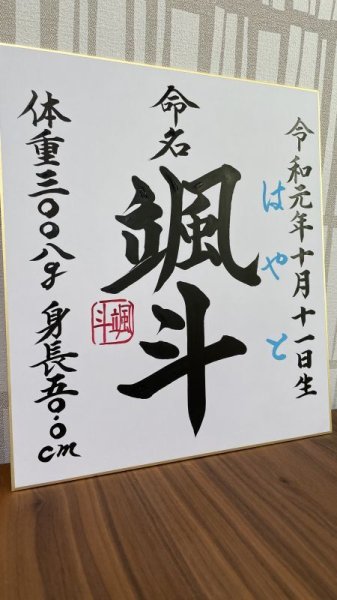 令和元年十月十一日生
はやと
命名
颯斗
颯斗
体重三〇〇八g 身長五〇.〇cm